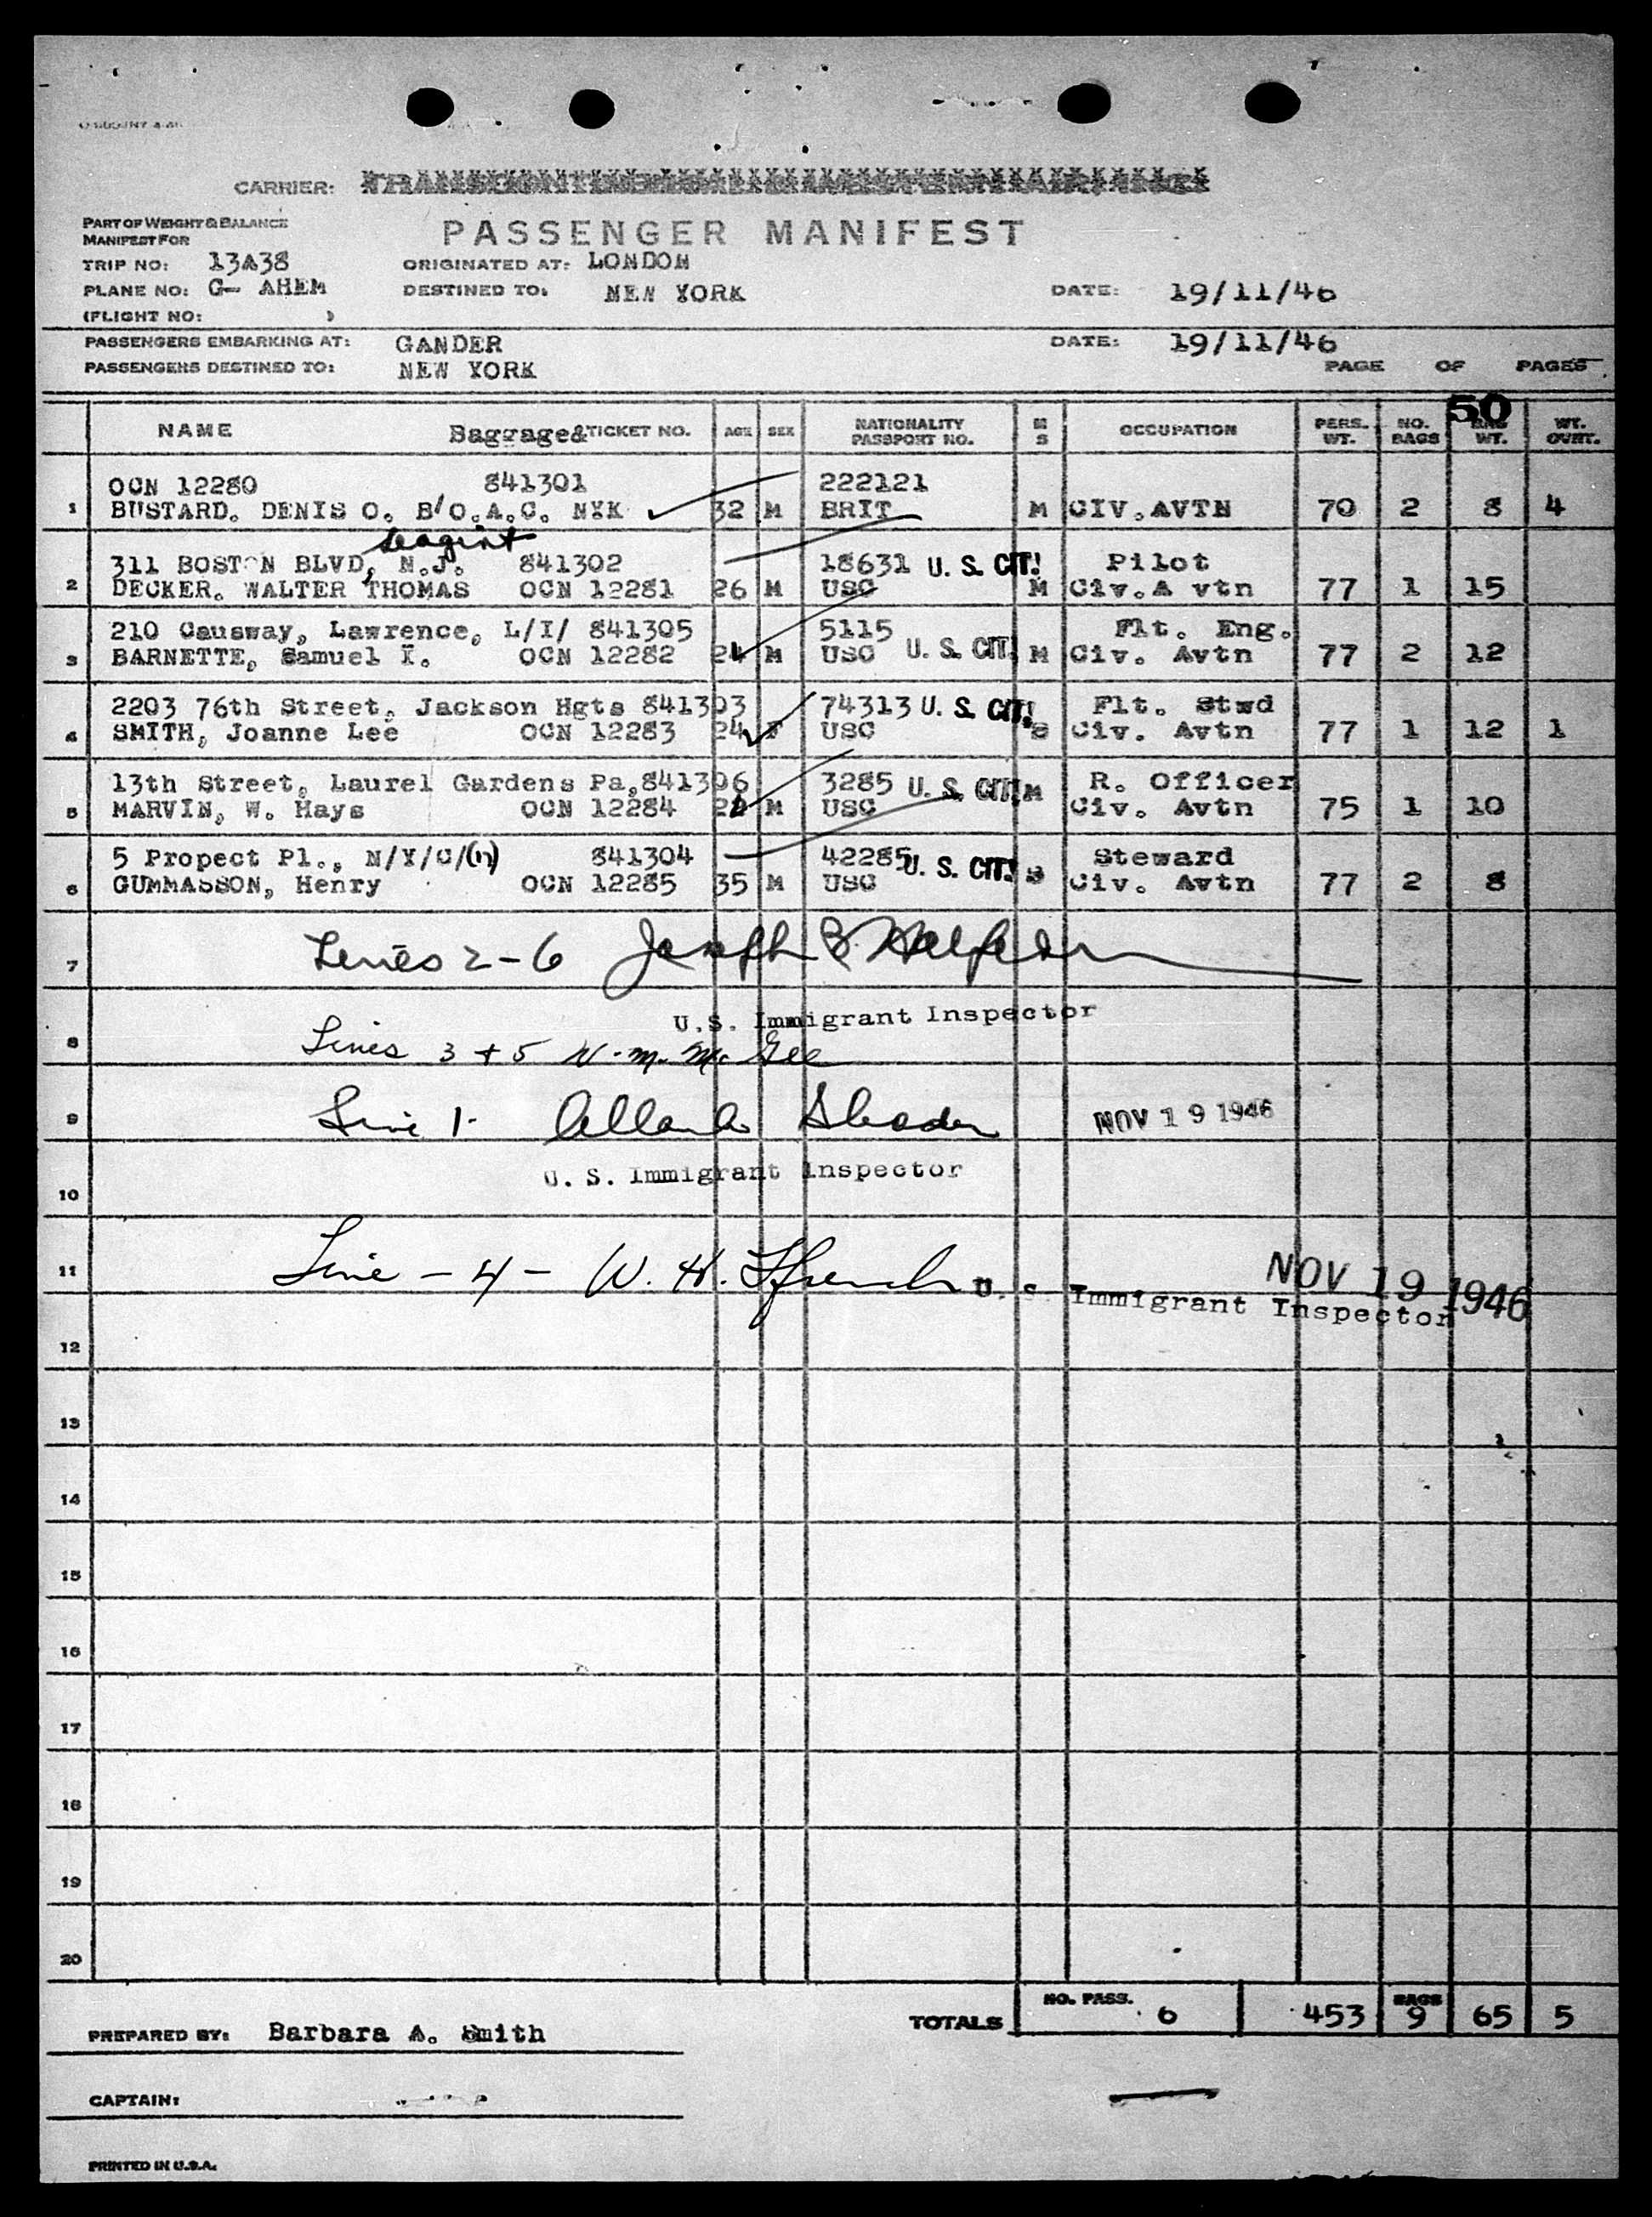 CARRIER:
PART OF WEIGHT & BALANCE
MANIFEST FOR
PASSENGER MANIFEST
TRIP NO: 13A38 ORIGINATED AT: LONDON
PLANE NO: G- AHEM DESTINED TO: NEW YORK DATE: 19/11/46
(FLIGHT NO: )
PASSENGERS EMBARKING AT: GANDER DATE: 19/11/46
PASSENGERS DESTINED TO: NEW YORK PAGE OF PAGES
50
NAME Baggage& TICKET NO. AGE SEX NATIONALITY PASSPORT NO. M S OCCUPATION PERS. WT. NO. BAGS BAG WT. WT. OVRT.
OCN 12280 841301 222121
1 BUSTARD. DENIS O. B/O.A.C. NYK 32 M BRIT M CIV.AVTN 70 2 8 4
311 BOSTON BLVD, N.J. 841302 18631 U. S. CIT. Pilot
2 DECKER. WALTER THOMAS OCN 12281 26 M USC M Civ.A vtn 77 1 15
210 Causway, Lawrence, L/I/ 841305 5115 U. S. CIT. Flt. Eng.
3 BARNETTE, Samuel I. OCN 12282 24 M USC M Civ. Avtn 77 2 12
2203 76th Street, Jackson Hgts 841303 74313 U. S. CIT. Flt. Stwd
4 SMITH, Joanne Lee OCN 12283 24 F USC S Civ. Avtn 77 1 12 1
13th Street, Laurel Gardens Pa,841306 3285 U. S. CIT. M R. Officer
5 MARVIN, W. Hays OCN 12284 M USC Civ. Avtn 75 1 10
5 Propect Pl., N/Y/C/(17) 841304 42285 U. S. CIT. S Steward
6 GUMMASSON, Henry OCN 12285 35 M USC Civ. Avtn 77 2 8
7 Lines 2-6 Joseph B.
U.S. Immigrant Inspector
8 Lines 3 + 5 W. M. McGee
9 Line 1- NOV 19 1946
U. S. Immigrant Inspector
10
11 Line - 4 - W. H. NOV 19 1946
U. S. Immigrant Inspector
12
13
14
15
16
17
18
19
20
TOTALS NO. PASS. 6 453 BAGS 9 65 5
PREPARED BY: Barbara A. Smith
CAPTAIN:
PRINTED IN U.S.A.